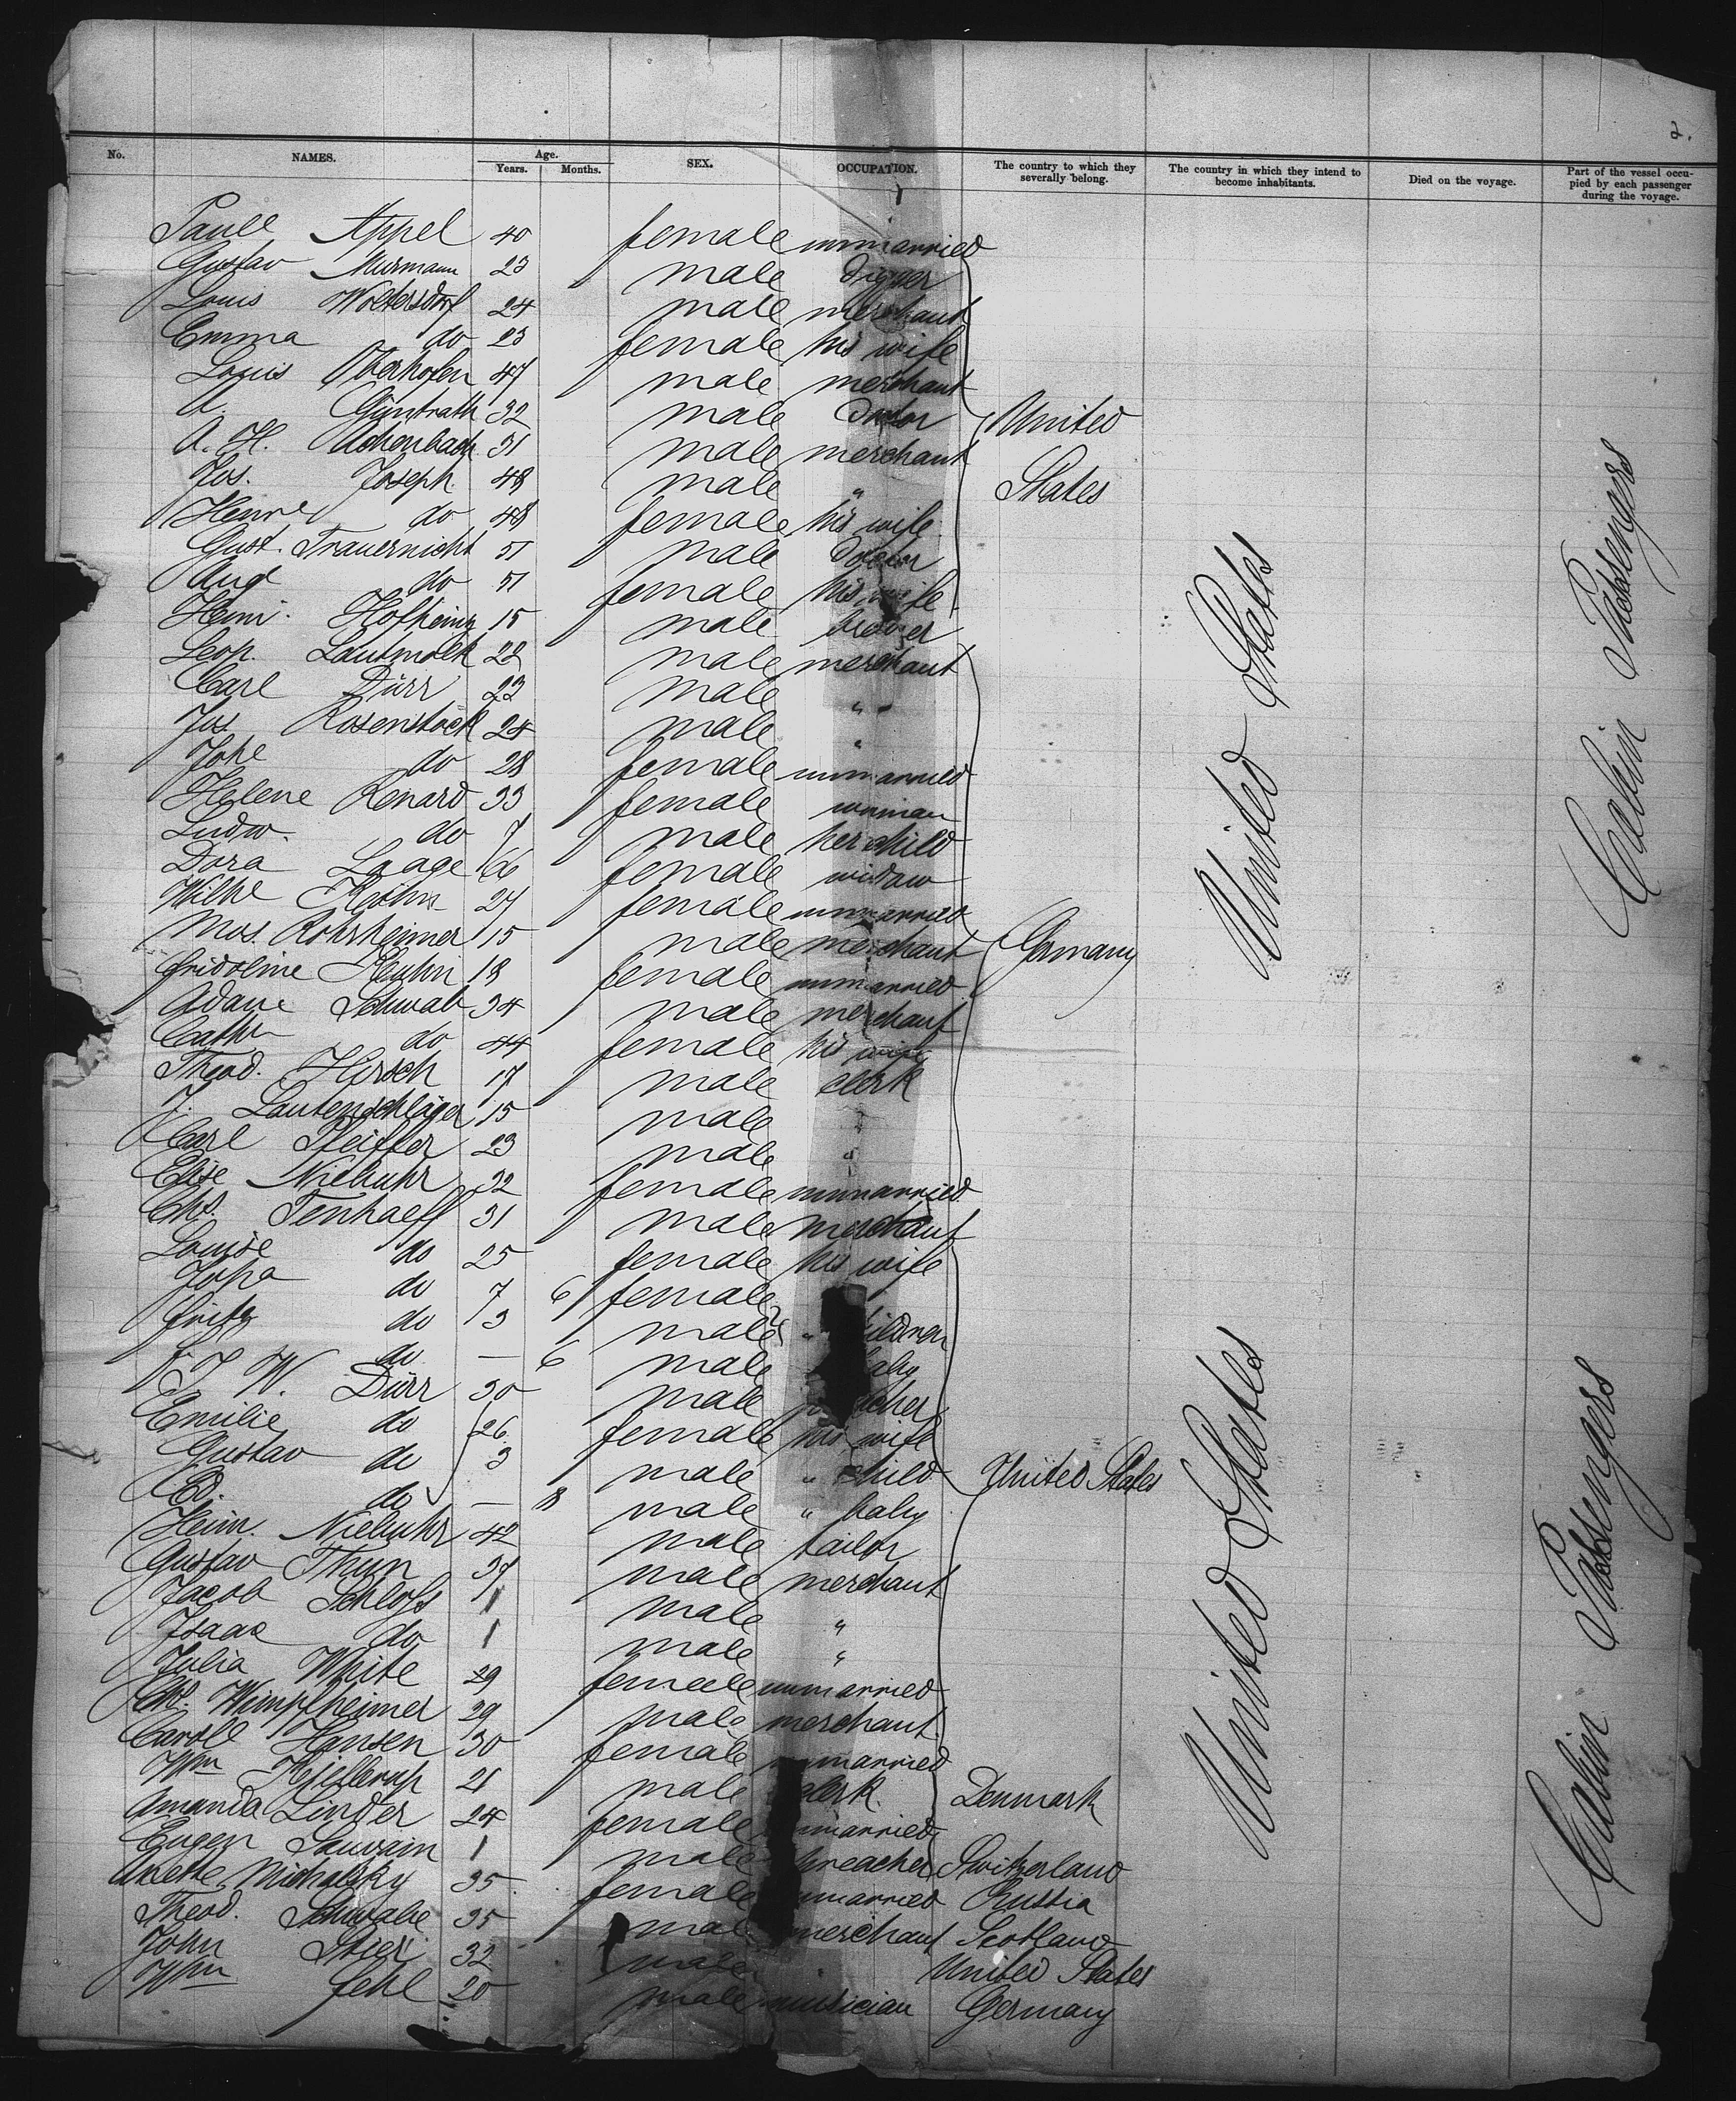 2.
No. NAMES. Age. Years. Months. SEX. OCCUPATION. The country to which they severally belong. The country in which they intend to become inhabitants. Died on the voyage. Part of the vessel occupied by each passenger during the voyage.
Paull Appel 40 female unmarried
Gustav Murmann 23 male
Louis Woltersdorf 24 male merchant
Emma do 23 female his wife
Louis Oberhofen 47 male merchant
A. Güntrath 32 male United
A. H. Achenbach 31 male merchant
Jos. Joseph 48 male " States
do 48 female his wife
Gust. Trauernicht 51 male
Aug do 51 female his wife
Heinr. Hofheinz 15 male
Leop. 22 male merchant
Carl Dürr 23 male "
Jos. Rosenstock 24 male "
do 28 female unmarried
Helene Renard 33 female woman
Ludw. do 7 male her child
Dora Laage 66 female widow
Wilhe 27 female unmarried
Mos. Rohrheimer 15 male merchant Germany
Fridoline 18 female unmarried
Adam Schwab 34 male merchant
Cathr do 44 female his wife
Theod. Hirsch 17 male clerk
J. Lautenschläger 15 male "
Carl Pfeiffer 23 male "
Elise Niebuhr 32 female unmarried
Chs. Tenhaeff 31 male merchant
Louise do 25 female his wife
do 7 6 female
Fritz do 3 male " children
do — 6 male baby
F. W. Dürr 30 male
Emilie do 26 female his wife
Gustav do 3 male " child United States
Ed. do — 8 male " baby
Heinr. Niebuhr 42 male tailor
Gustav Thun 37 male merchant
Jacob Schloss 1 male "
Isaac do 1 male "
Julia White 29 female unmarried
Chs. Wimpfheimer 29 male merchant
Caroll Hansen 30 female unmarried
Wm Kjellerup 21 male clerk Denmark
Amanda Linder 24 female unmarried
Eugen Sauvain 1 male preacher Switzerland
Michalsky 35 female unmarried Russia
Theod. Schwabe 35 male merchant Scotland
John Stier 32 male United States
Wm Fehl 20 male musician Germany
United States
Cabin Passengers
United States
Cabin Passengers